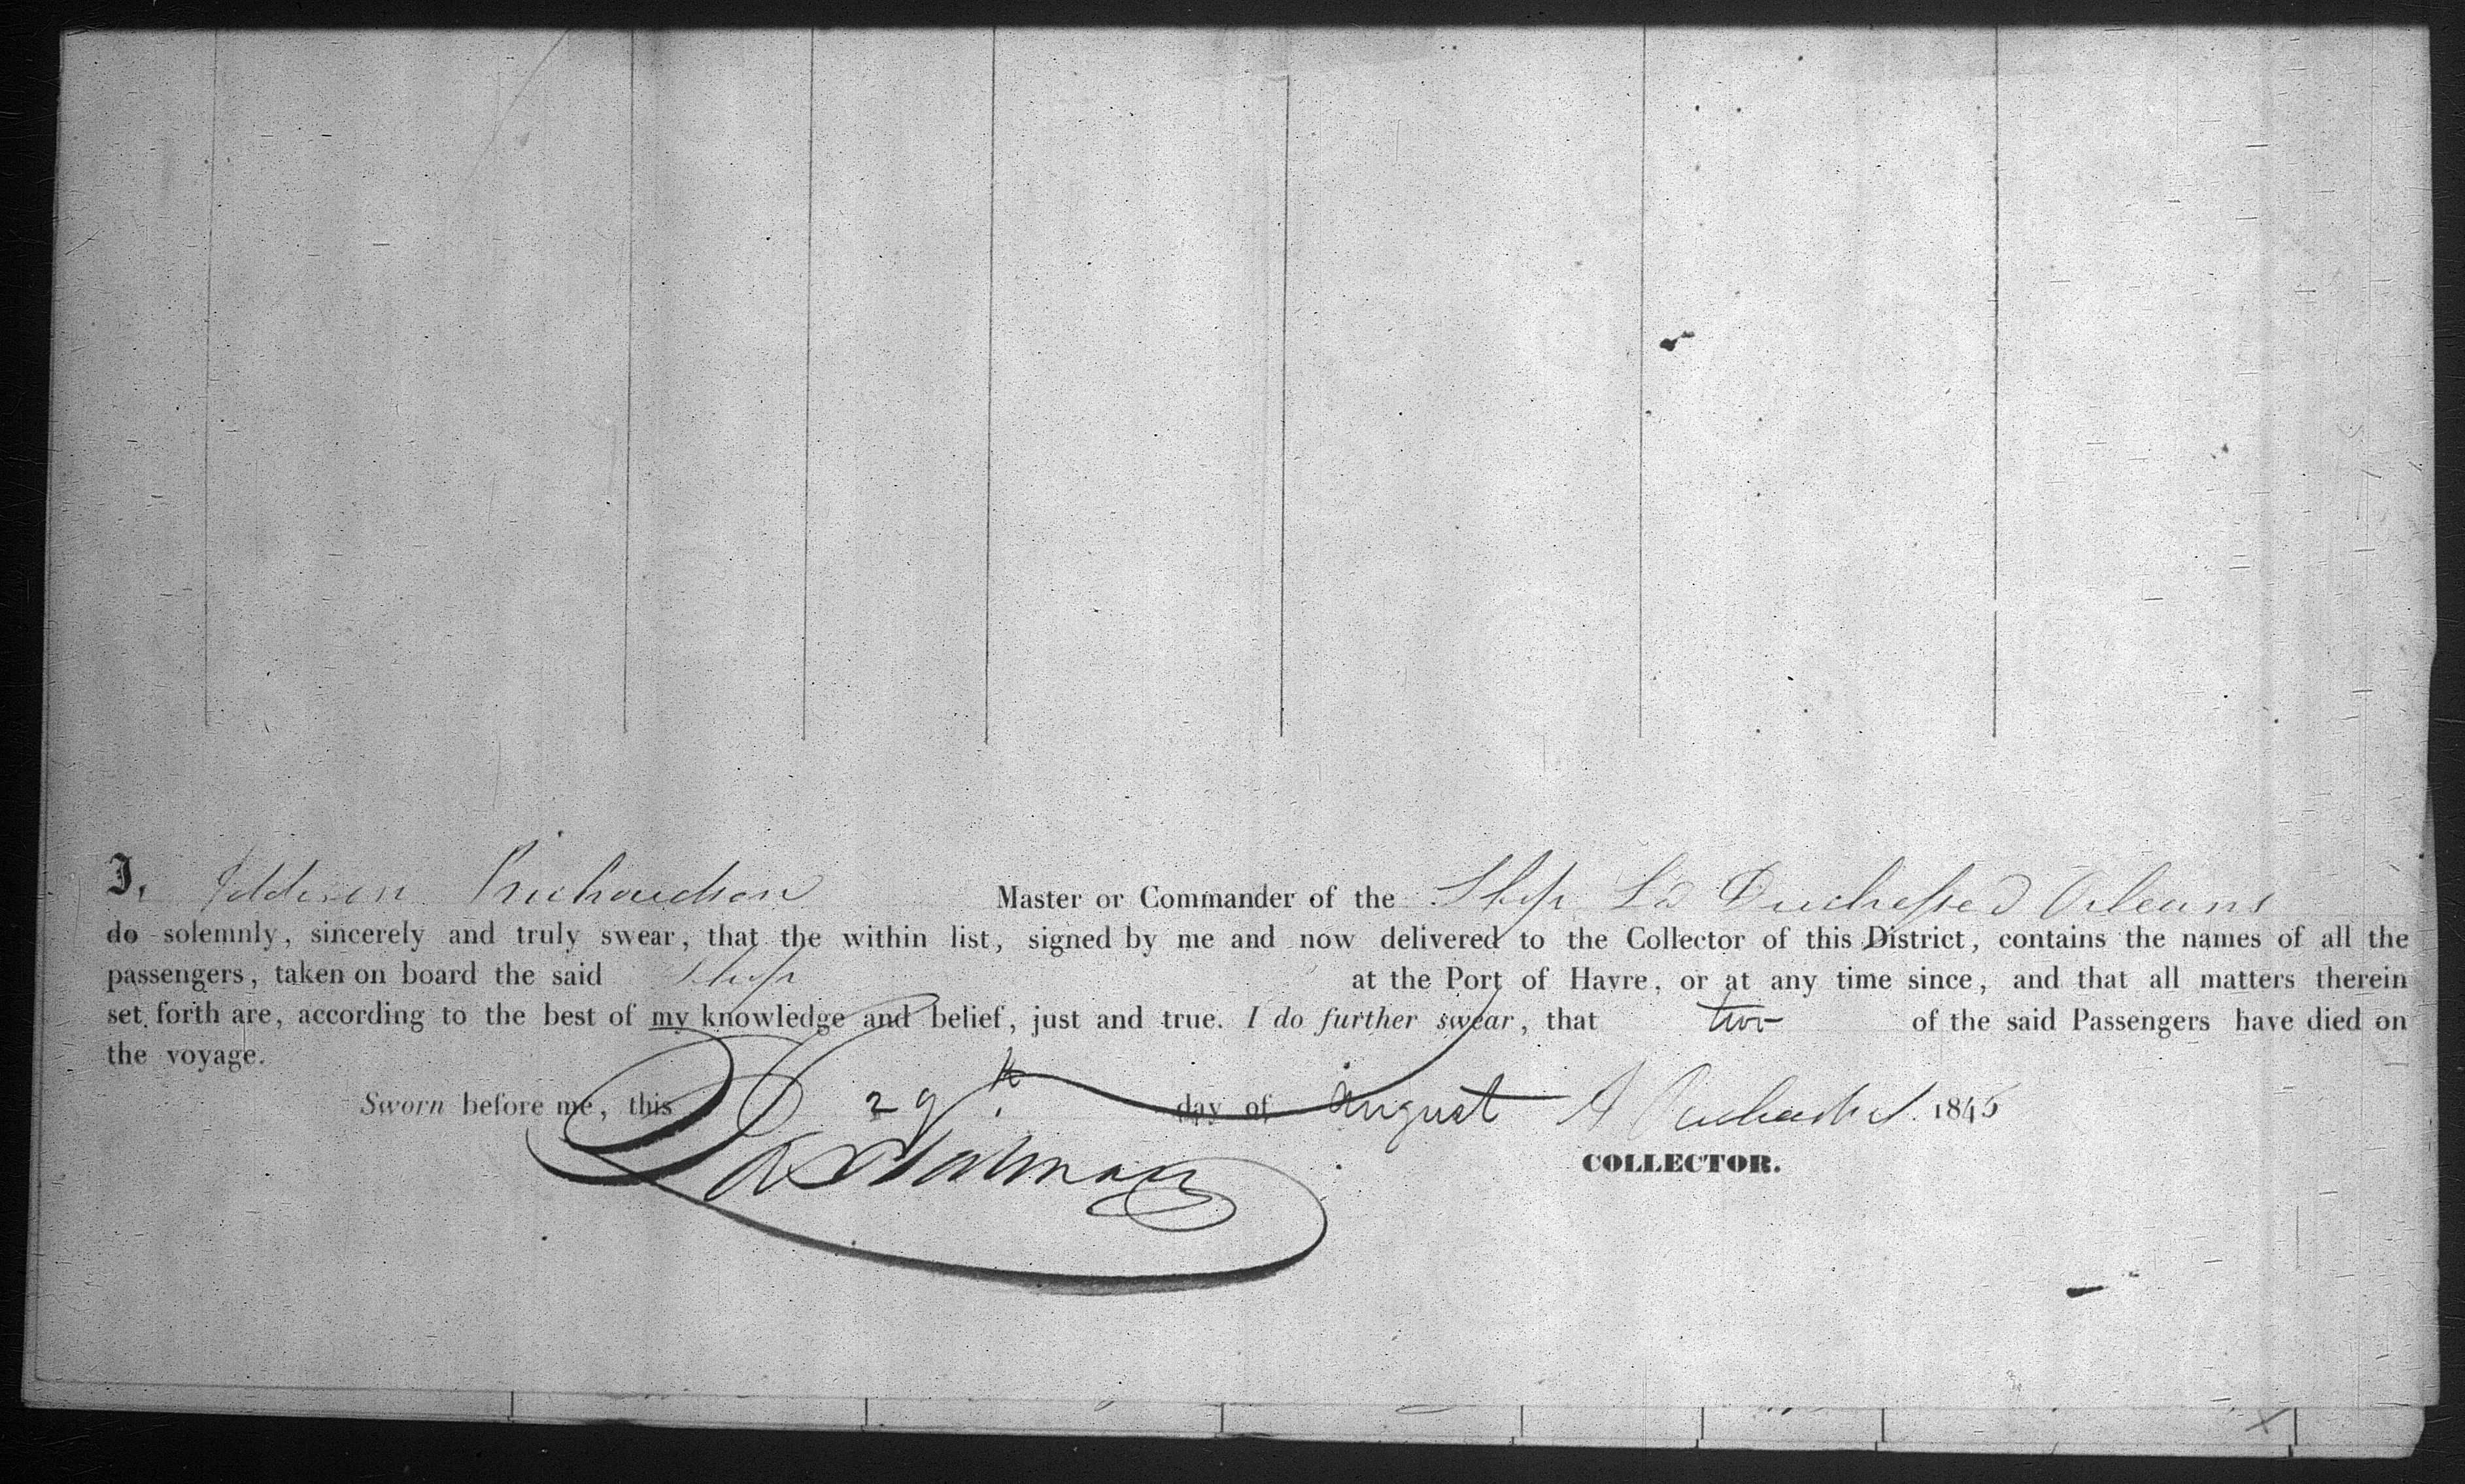 I, Addison Richardson Master or Commander of the Ship La Duchesse d Orleans
do solemnly, sincerely and truly swear, that the within list, signed by me and now delivered to the Collector of this District, contains the names of all the
passengers, taken on board the said Ship at the Port of Havre, or at any time since, and that all matters therein
set forth are, according to the best of my knowledge and belief, just and true. I do further swear, that two of the said Passengers have died on
the voyage.
Sworn before me, this 29th day of August A Richardson 1845
COLLECTOR.